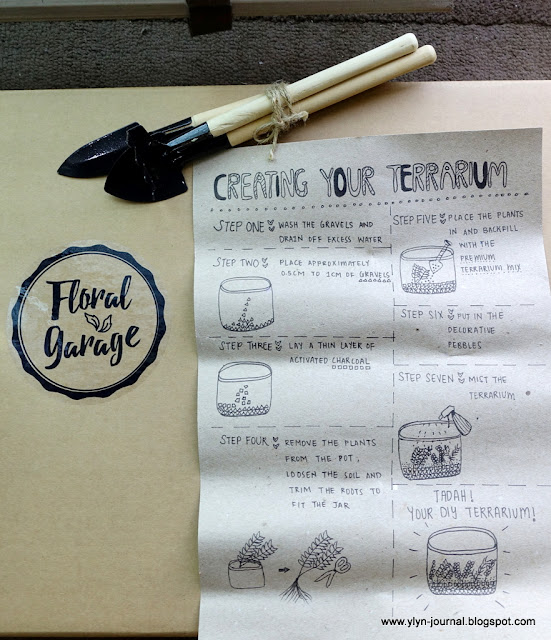 CREATING YOUR TERRARIUM
STEP ONE WASH THE GRAVELS AND
DRAIN OFF EXCESS WATER
STEP TWO PLACE APPROXIMATELY
0.5CM TO 1CM OF GRAVELS
STEP THREE LAY A THIN LAYER OF
ACTIVATED CHARCOAL
STEP FOUR REMOVE THE PLANTS
FROM THE POT,
LOOSEN THE SOIL AND
TRIM THE ROOTS TO
FIT THE JAR
STEP FIVE PLACE THE PLANTS
IN AND BACKFILL
WITH THE
PREMIUM
TERRARIUM MIX
STEP SIX PUT IN THE
DECORATIVE
PEBBLES
STEP SEVEN MIST THE
TERRARIUM
TADAH!
YOUR DIY TERRARIUM!
Floral
Garage
www.ylyn-journal.blogspot.com